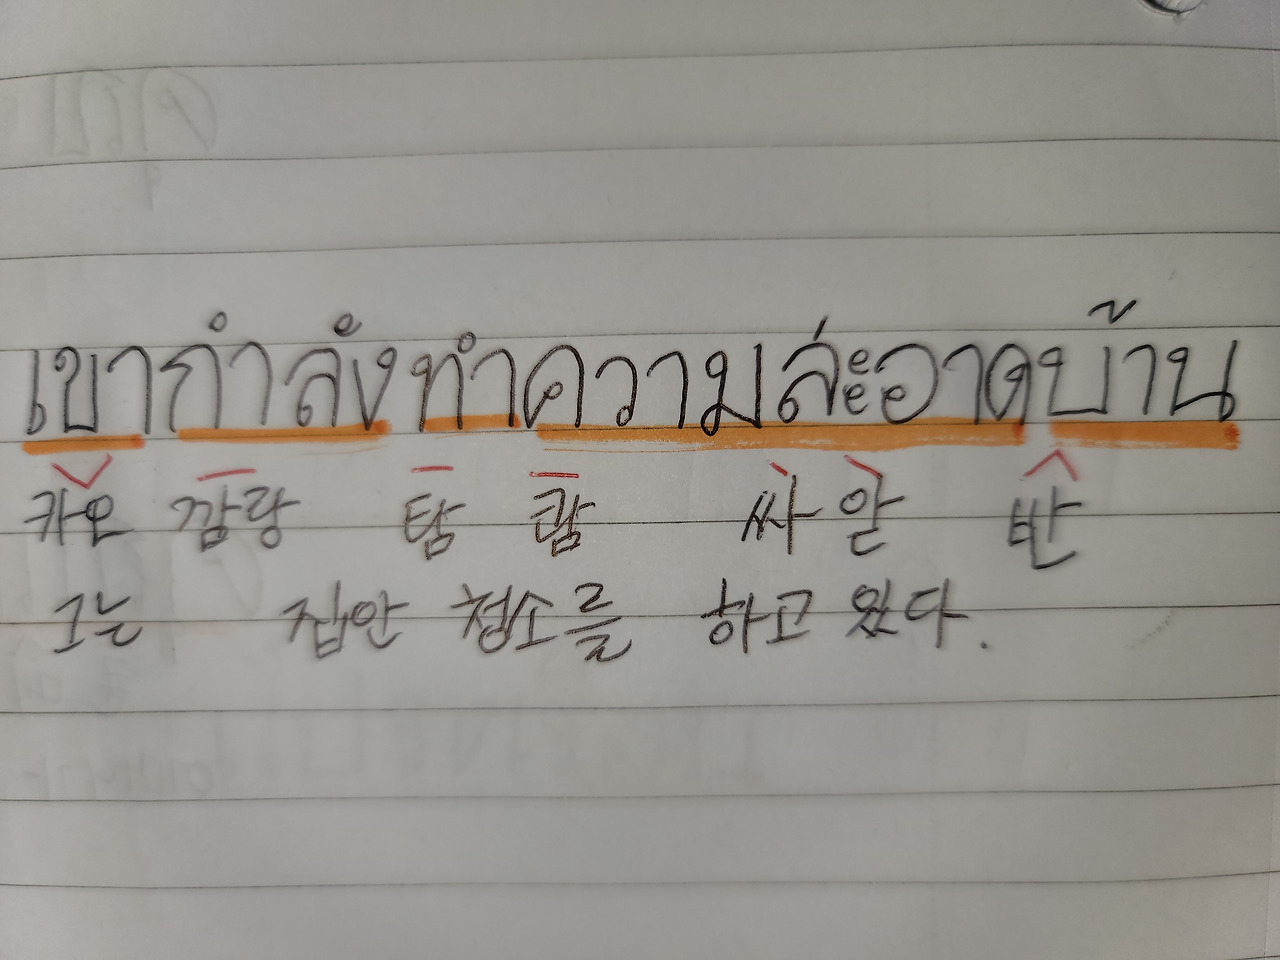 เขากำลังทำความสะอาดบ้าน
카오 깜랑 탐 쾀 싸 앋 반
그는 집안 청소를 하고 있다.